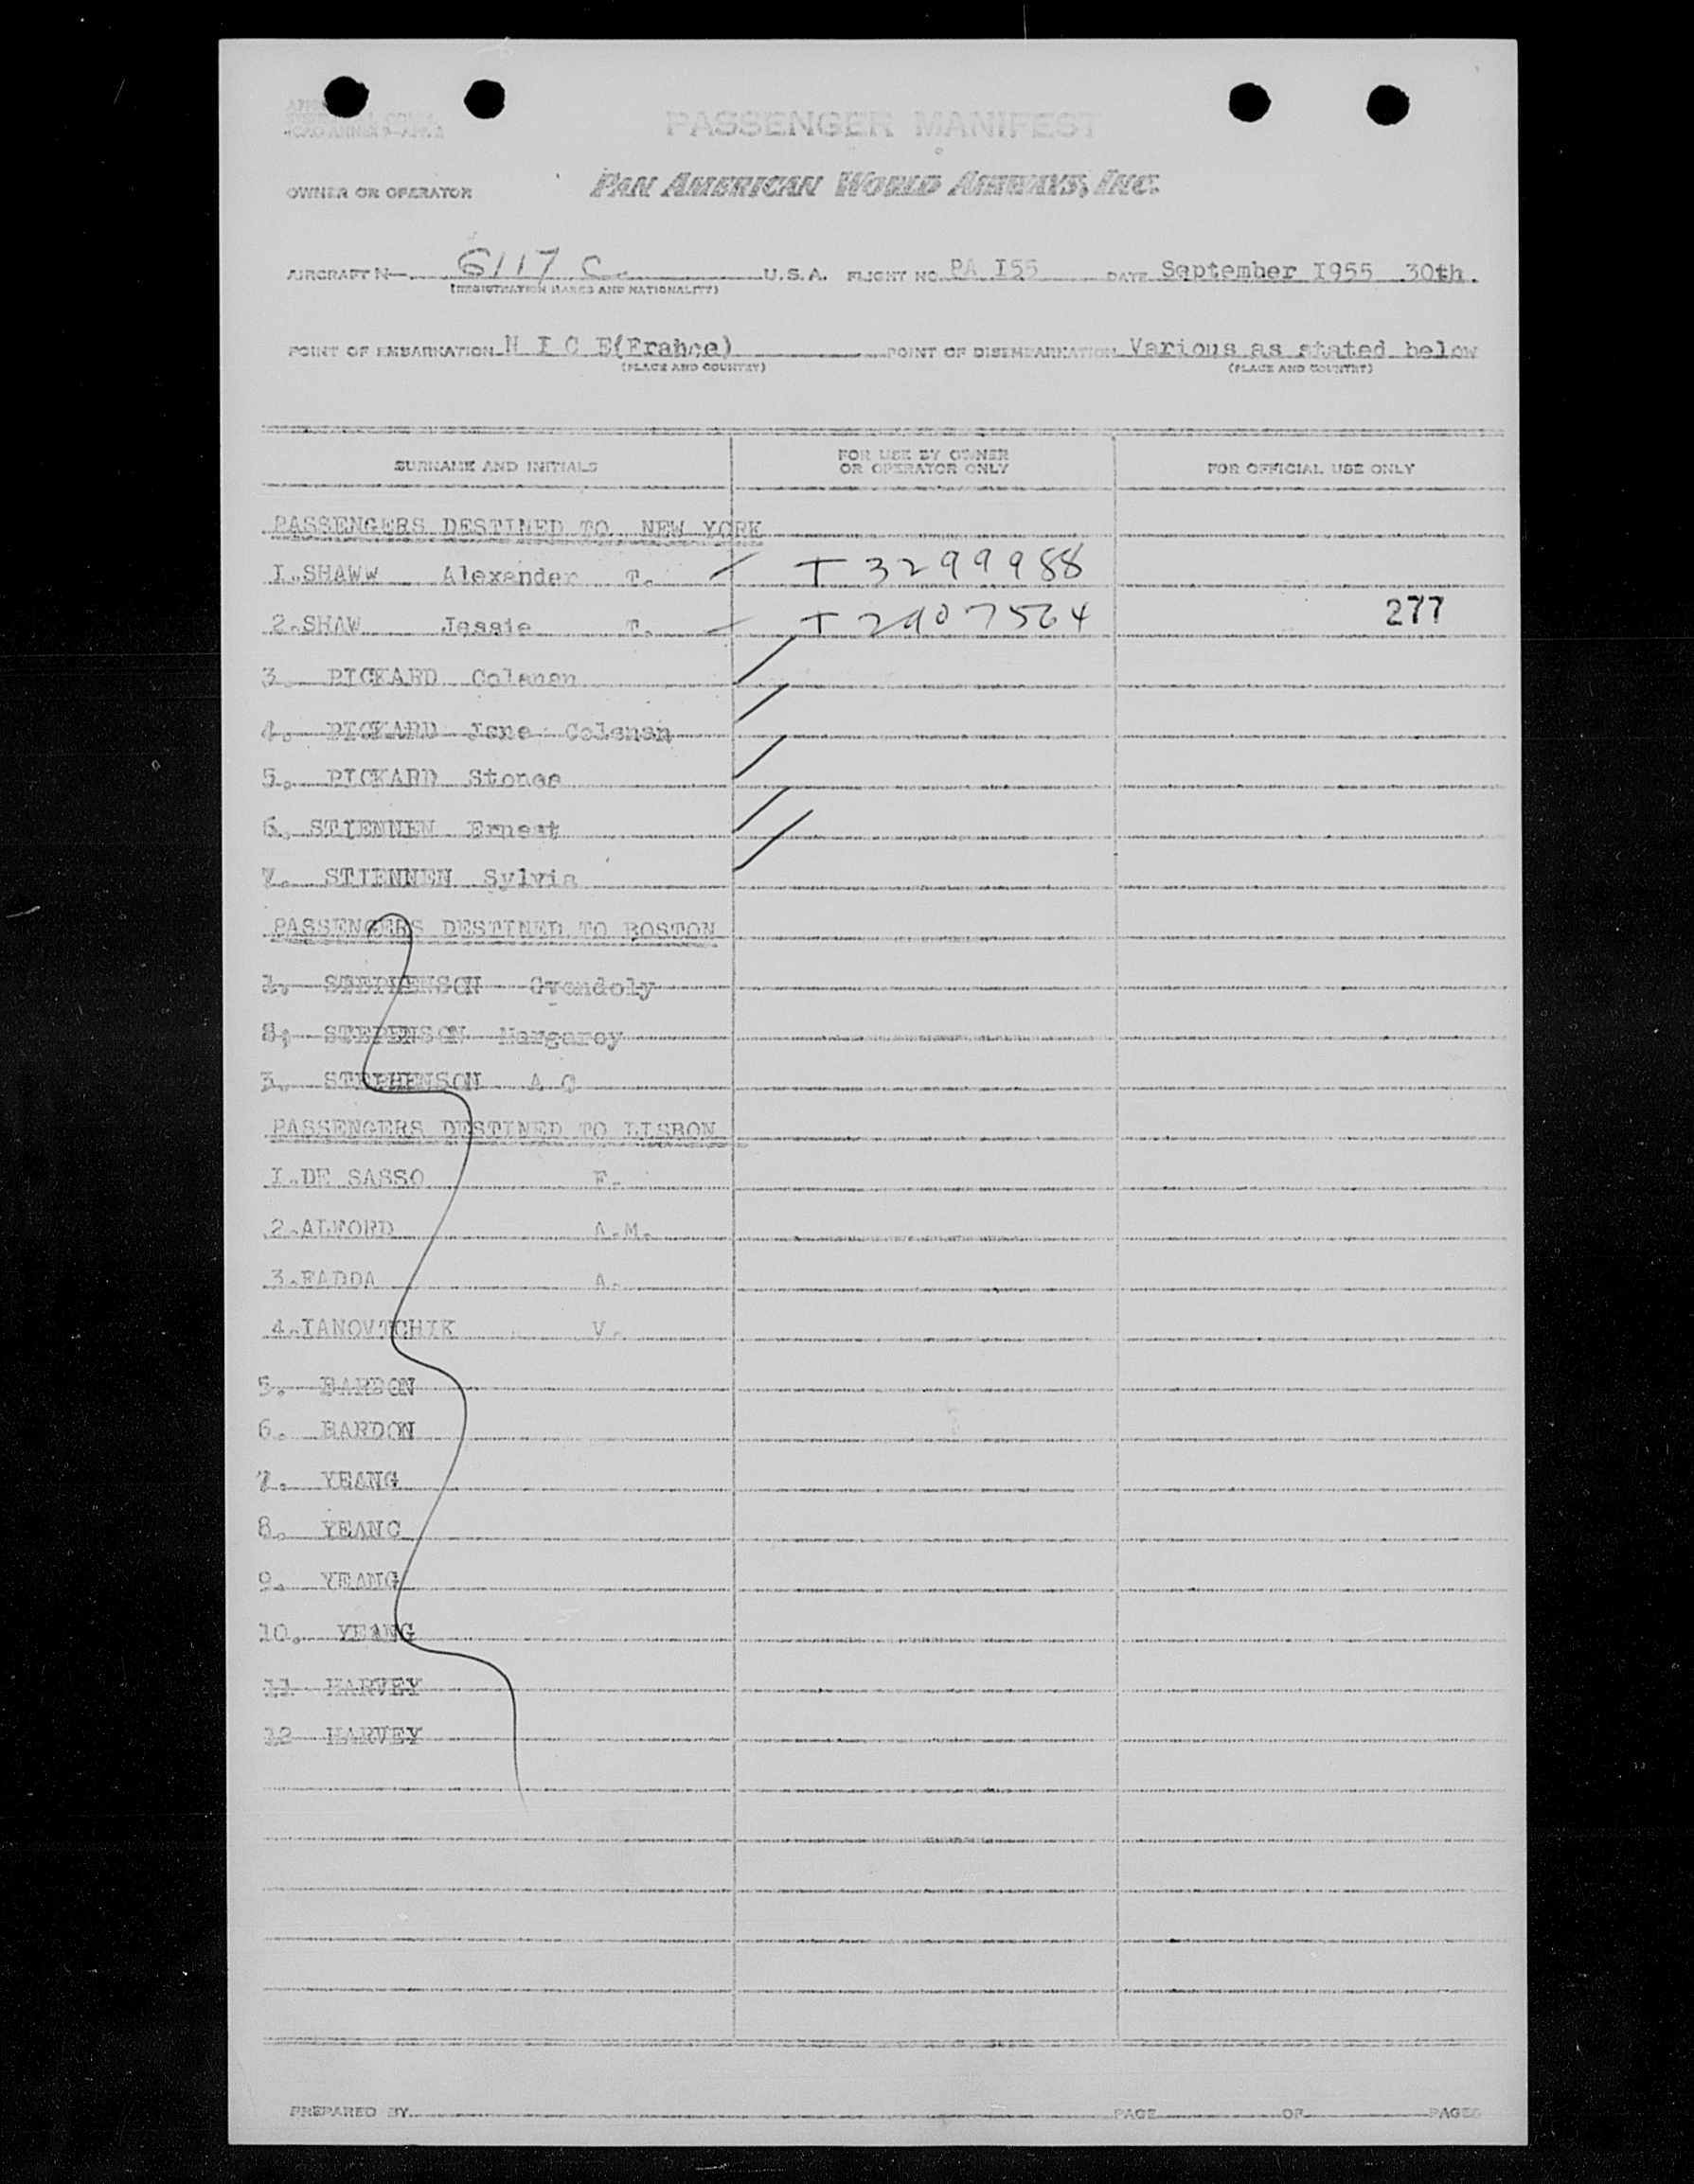 PASSENGER MANIFEST
OWNER OR OPERATOR PAN AMERICAN WORLD AIRWAYS, INC.
AIRCRAFT N— 6117 C. U.S.A. FLIGHT NO. PA I55 DATE September I955 30th.
(REGISTRATION MARKS AND NATIONALITY)
POINT OF EMBARKATION N I C E(France) POINT OF DISEMBARKATION Various as stated below
(PLACE AND COUNTRY) (PLACE AND COUNTRY)
SURNAME AND INITIALS FOR USE BY OWNER OR OPERATOR ONLY FOR OFFICIAL USE ONLY
PASSENGERS DESTINED TO NEW YORK
I.SHAWW Alexander T. T 3299988
2.SHAW Jessie T. T 2907564 277
3. PICKARD Coleman
4. PICKARD Jane Coleman
5. PICKARD Stonee
6. STIENNEN Ernest
7. STIENNEN Sylvia
PASSENGERS DESTINED TO BOSTON
1. STEPHENSON Gwendoly
2. STEPENSON Margaroy
3. STEPHENSON A C
PASSENGERS DESTINED TO LISBON
I.DE SASSO F.
2.ALFORD A.M.
3.FADDA A.
4.IANOVTCHIK V.
5. BARDON
6. BARDON
7. YEANG
8. YEANG
9. YEANG
10. YEANG
11 HARVEY
12 HARVEY
PREPARED BY PAGE OF PAGES